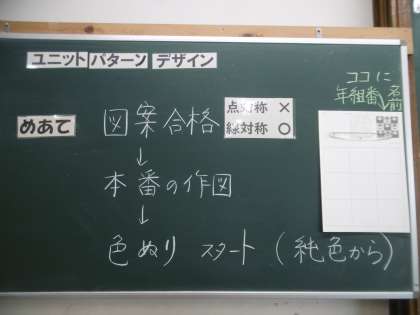 ユニット パターン デザイン
ココに
年組番 名前
めあて
図案合格
点対称 ×
線対称 ○
↓
本番の作図
↓
色ぬり スタート (純色から)